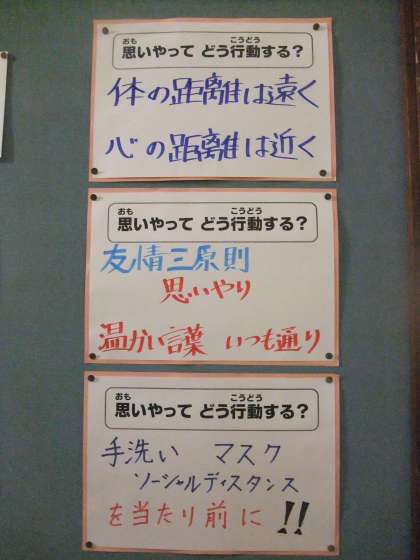 おも こうどう
思いやって どう行動する?
体の距離は遠く
心の距離は近く
おも こうどう
思いやって どう行動する?
友情三原則
思いやり
温かい言葉 いつも通り
おも こうどう
思いやって どう行動する?
手洗い マスク
ソーシャルディスタンス
を当たり前に!!